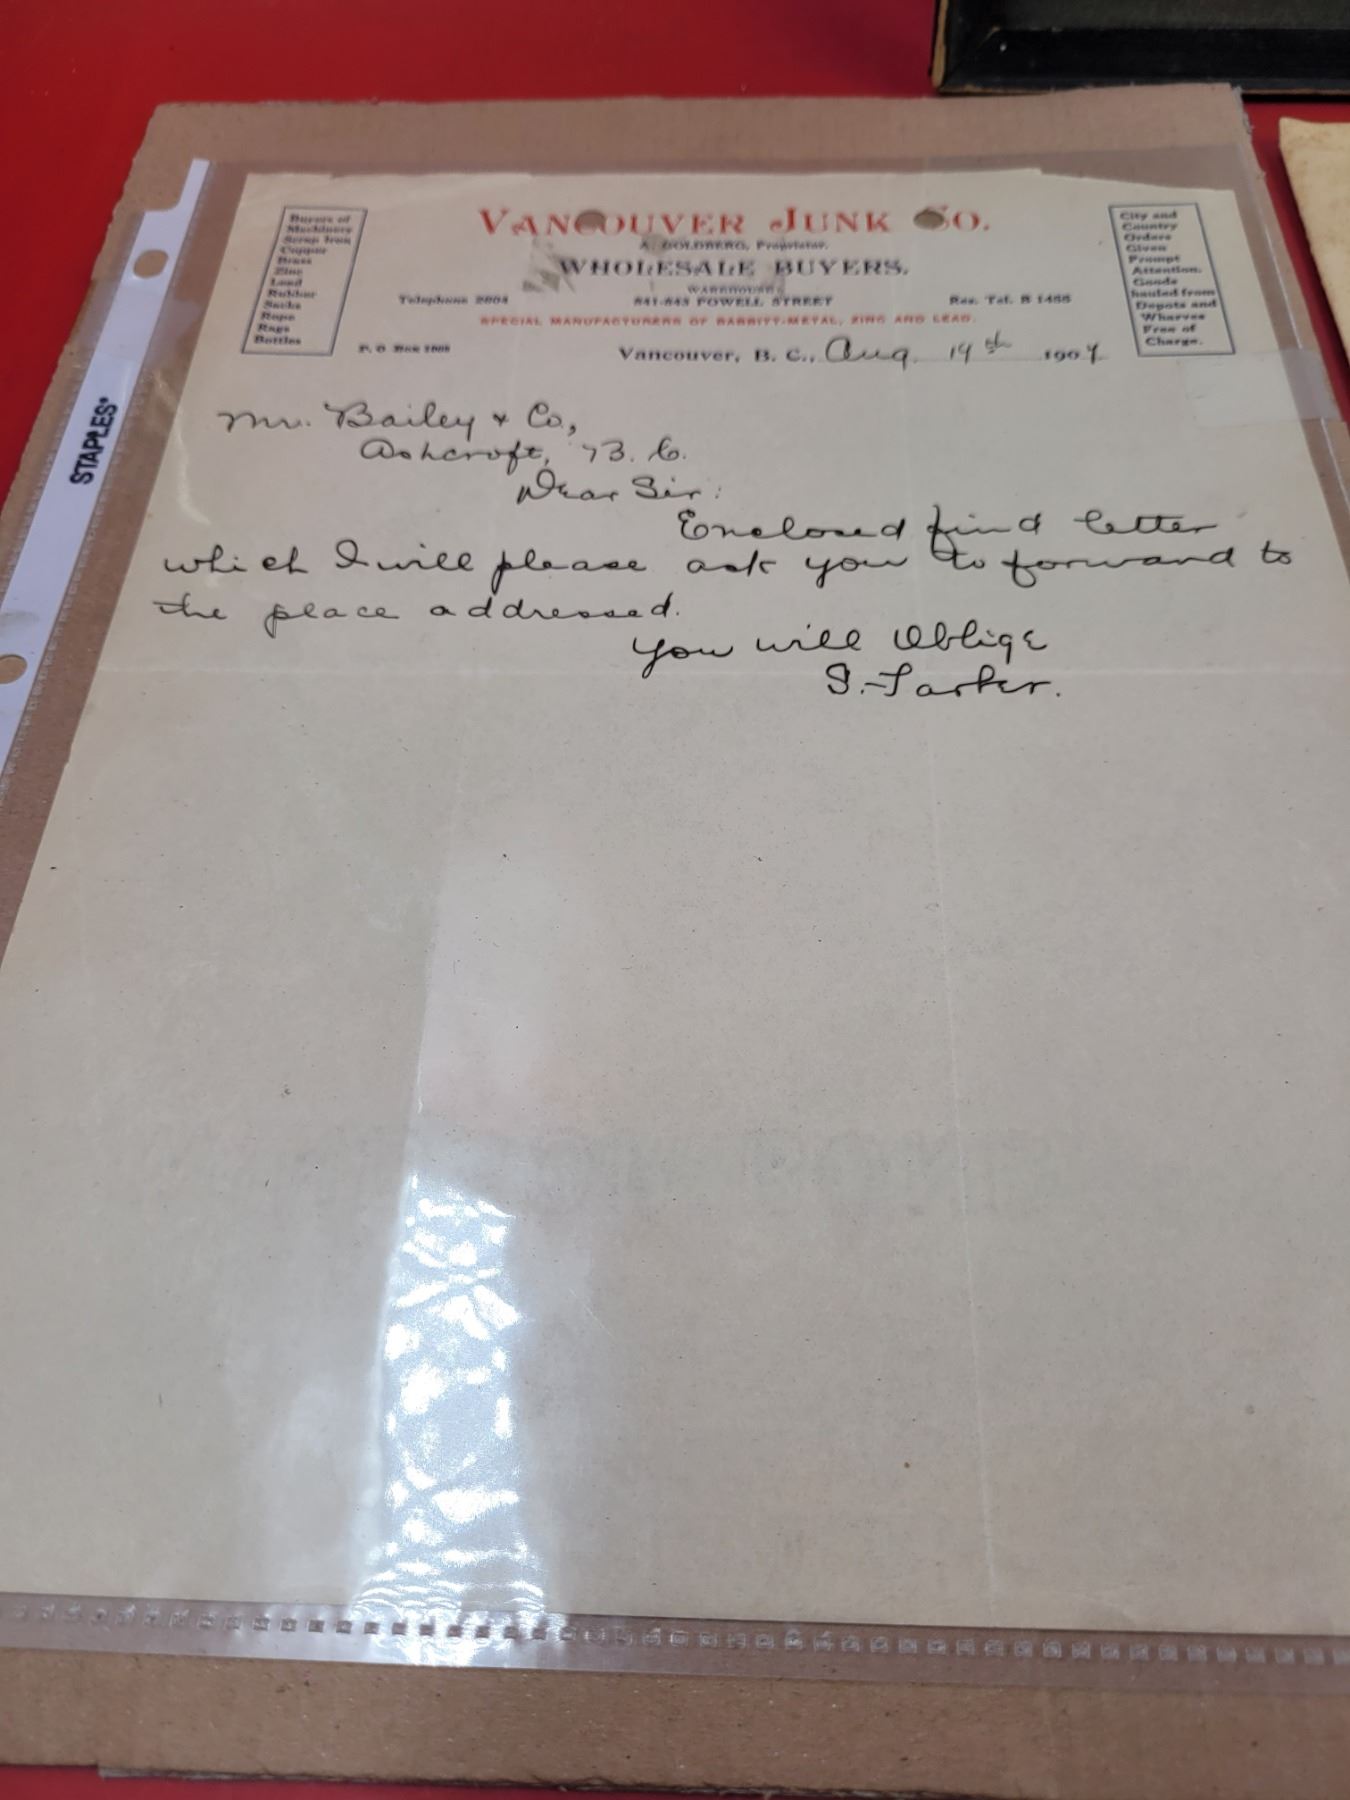 STAPLES®
Buyers of
Machinery
Scrap Iron
Copper
Brass
Zinc
Lead
Rubber
Sacks
Rope
Rags
Bottles
VANCOUVER JUNK CO.
A. GOLDBERG, Proprietor.
WHOLESALE BUYERS.
WAREHOUSE:
Telephone 2604 841-843 POWELL STREET Res. Tel. B 1466
SPECIAL MANUFACTURERS OF BABBITT-METAL, ZINC AND LEAD.
P. O. Box
City and
Country
Orders
Given
Prompt
Attention.
Goods
hauled from
Depots and
Wharves
Free of
Charge.
Vancouver, B. C., Aug. 14th 1907
Mr. Bailey & Co,
Ashcroft, B. C.
Dear Sir:
Enclosed find letter
which I will please ask you to forward to
the place addressed.
You will Oblige